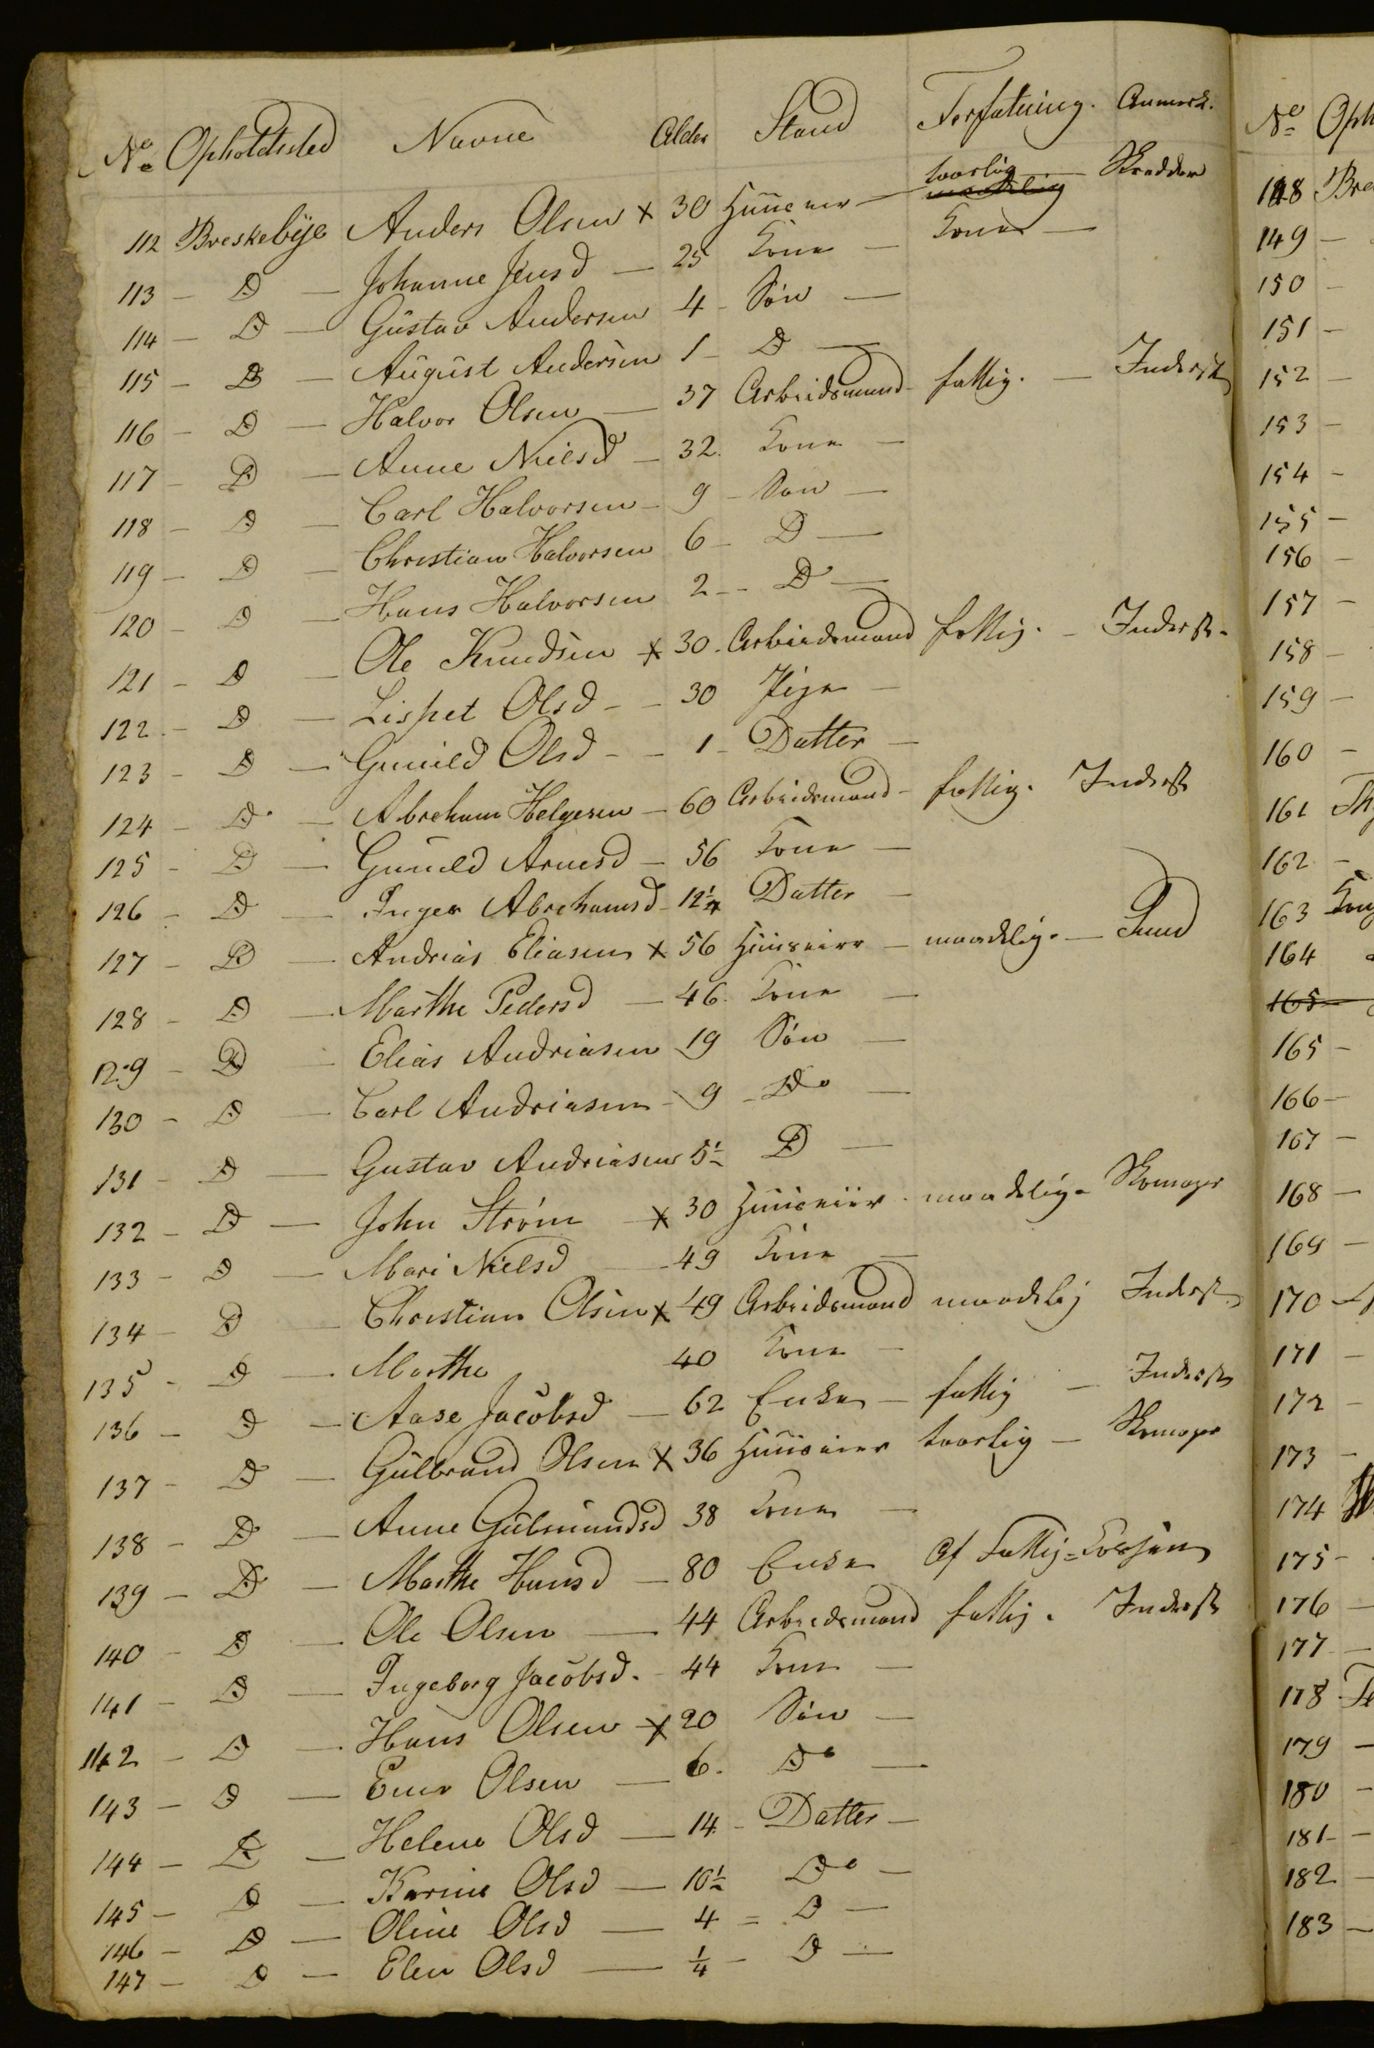 No Opholdsted Navne Alder Stand Forfatning. Anmerk.
112 Breskebÿe Anders Olsen x 30 Huuseier — taarlig maadelig — Skredder
113 — D — Johanne Jensd — 25 Kone — Kone —
114 — D — Gustav Andersen 4 — Søn —
115 — D — August Andersen 1 — D —
116 — D — Halvor Olsen — 37 Arbeidsmand — fattig. — Inderst
117 — D — Anne Nielsd — 32. Kone —
118 — D — Carl Halvorsen — 9 — Søn —
119 — D — Christian Halvorsen 6 — D —
120 — D — Hans Halvorsen 2 — D —
121 — D — Ole Knudsen x 30. Arbeidsmand fattig. — Inderst.
122 — D — Lispet Olsd — 30 Pige —
123 — D — Gunild Olsd — 1 — Datter —
124 — D — Abreham Helgesen — 60 Arbeidsmand — fattig. Inderst
125 — D — Gunild Arnesd — 56 Kone —
126 — D — Inger Abrehamsd — 12¼ Datter —
127 — D — Andrias Eliasen x 56 Huuseier — maadelig. —
128 — D — Marthe Pedersd — 46. Kone —
129 — D — Elias Andriasen 19 Søn —
130 — D — Carl Andriasen — 9 — Do —
131 — D — Gustav Andriasen 5½ D —
132 — D — John Strøm x 30 Huuseier — maadelig — Skomager
133 — D — Mari Nielsd — 49 Kone —
134 — D — Christian Olsen x 49 Arbeidsmand maadelig Inderst
135 — D — Marthe 40 Kone —
136 — D — Aase Jacobsd — 62 Enke — fattig — Inderst
137 — D — Gulbrand Olsen x 36 Huuseier taarlig — Skomager
138 — D — Anne Gulmundsd 38 Kone —
139 — D — Marthe Hansd — 80 Enke Af Fattig=Cassen
140 — D — Ole Olsen — 44 Arbeidsmand fattig. Inderst
141 — D — Ingeborg Jacobsd. — 44 Kone —
142 — D — Hans Olsen — x 20 Søn —
143 — D — Olsen — 6. Do —
144 — D — Helene Olsd — 14 — Datter —
145 — D — Karine Olsd — 10½ Do —
146 — D — Oline Olsd — 4 = D —
147 — D — Elen Olsd — ¼ — D —
No Oph
148 Bre
149 —
150 —
151 —
152 —
153 —
154 —
155 —
156 —
157 —
158 —
159 —
160 —
161
162 —
163
164
165
165 —
166 —
167 —
168 —
169 —
170
171 —
172 —
173 —
174
175 —
176 —
177 —
178
179 —
180 —
181 —
182 —
183 —